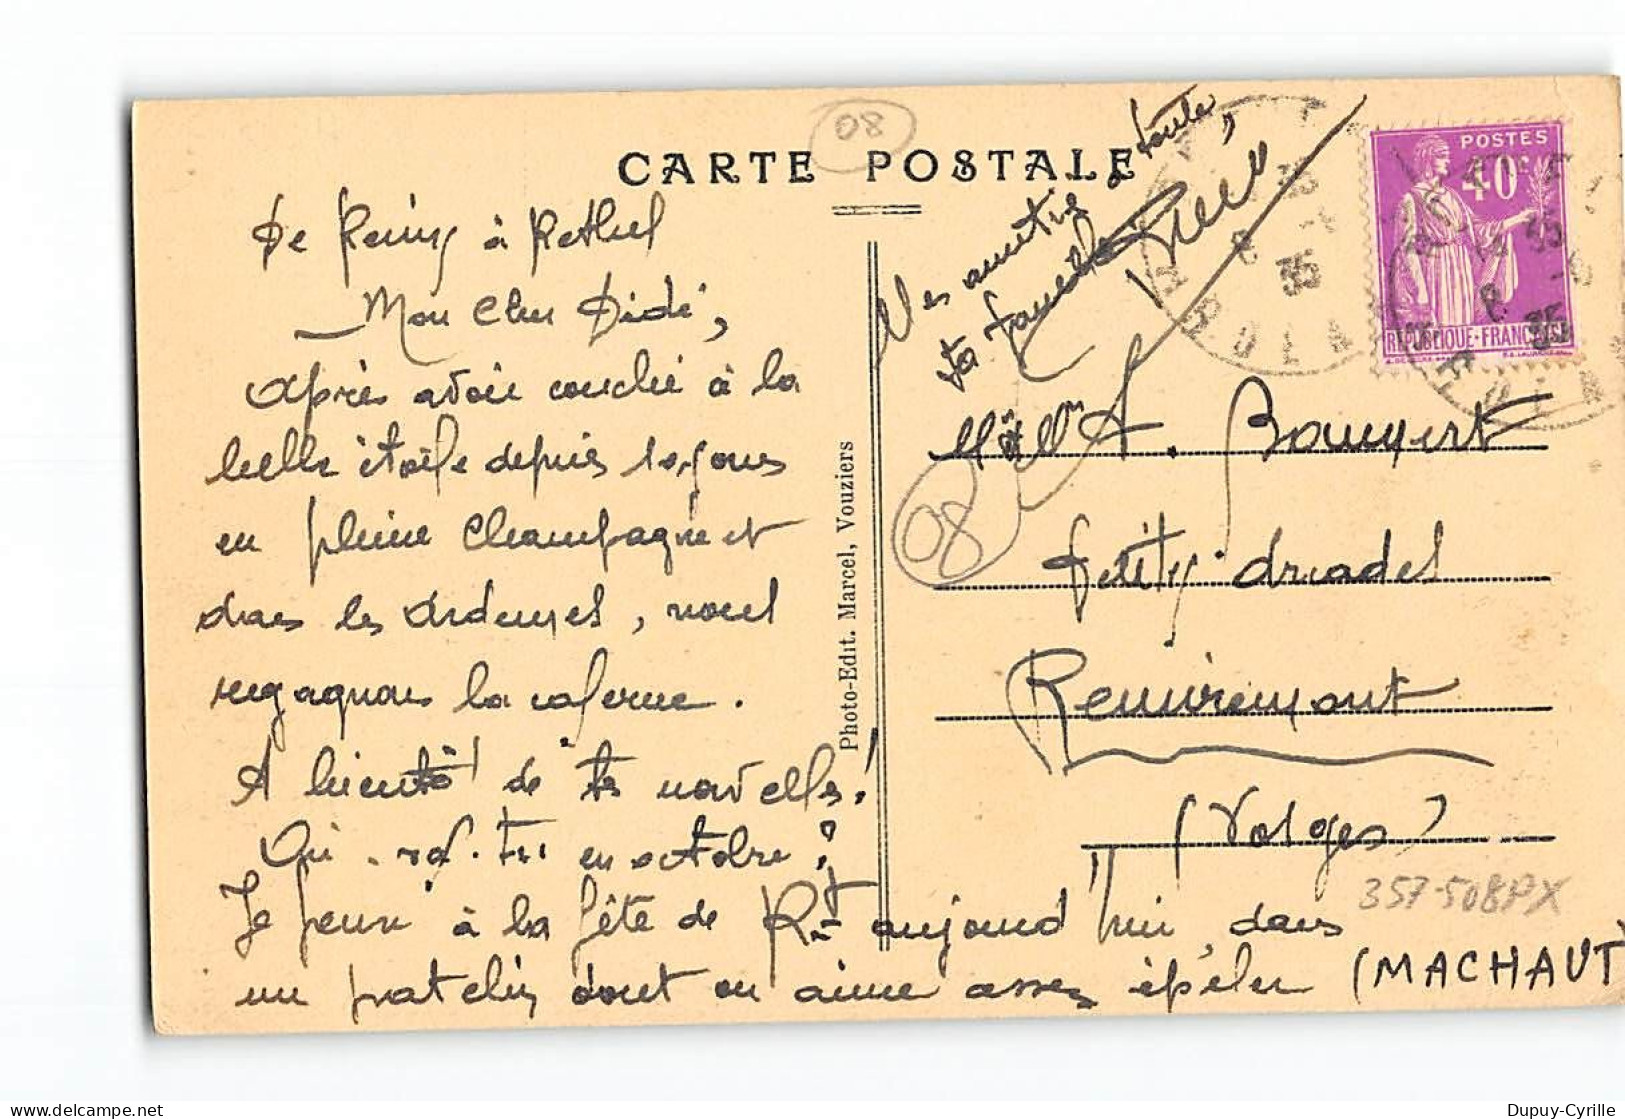 08
CARTE POSTALE
De Reims à Rethel
Mon Cher Didi,
Après avoir couché à la
belle étoile depuis 10 jours
en pleine Champagne et
dans les Ardennes, nous
regagnons la caserne.
A bientôt de tes nouvelles!
Où vas-tu en octobre?
Je pense à la fête de Rt aujourd'hui, dans
un patelin dont on aime assez épeler (MACHAUT
Mes amitiés à toute
ta famille,
Photo-Edit. Marcel, Vouziers
POSTES
40c
REPUBLIQUE-FRANÇAISE
35
35
Mr & Mme A.
08
Remiremont
(Vosges)
357-508PX
Dupuy-Cyrille